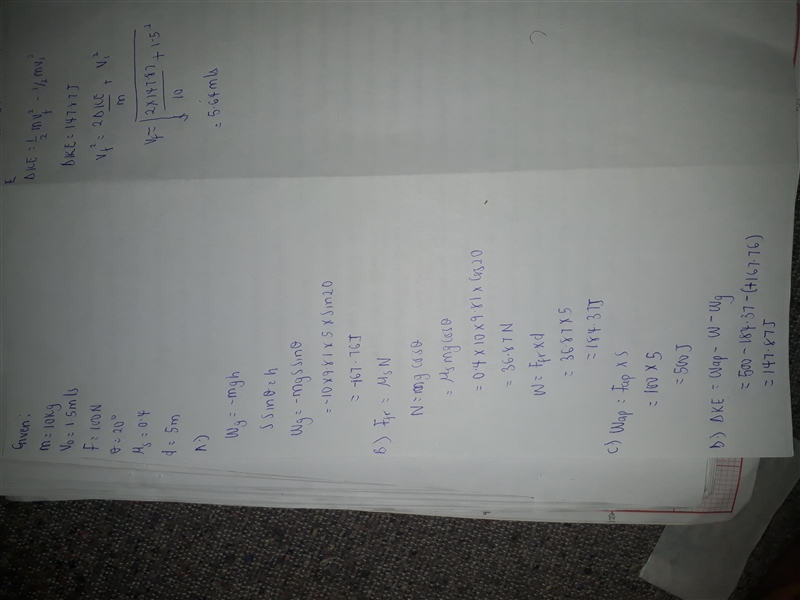 Given:
m = 10kg
V₀ = 1.5m/s
F = 100N
θ = 20°
μₛ = 0.4
d = 5m
A)
Wg = -mgh
S sinθ = h
Wg = -mgs sinθ
= -10×9.81×5×sin20
= -167.76J
B) Ffr = μₛN
N = mg cosθ
= μₛmgcosθ
= 0.4×10×9.81×Cos20
= 36.87N
W = Ffr×d
= 36.87×5
= 184.37J
C) Wap = Fap×S
= 100×5
= 500J
D) ΔKE = Wap - W - Wg
= 500-184.37-(+167.76)
= 147.87J
E
ΔKE = 1/2 mvf² - 1/2 mvi²
ΔKE = 147.87J
Vf² = 2ΔKE/m + Vi²
Vf = √(2×147.87/10 + 1.5²)
= 5.64m/s